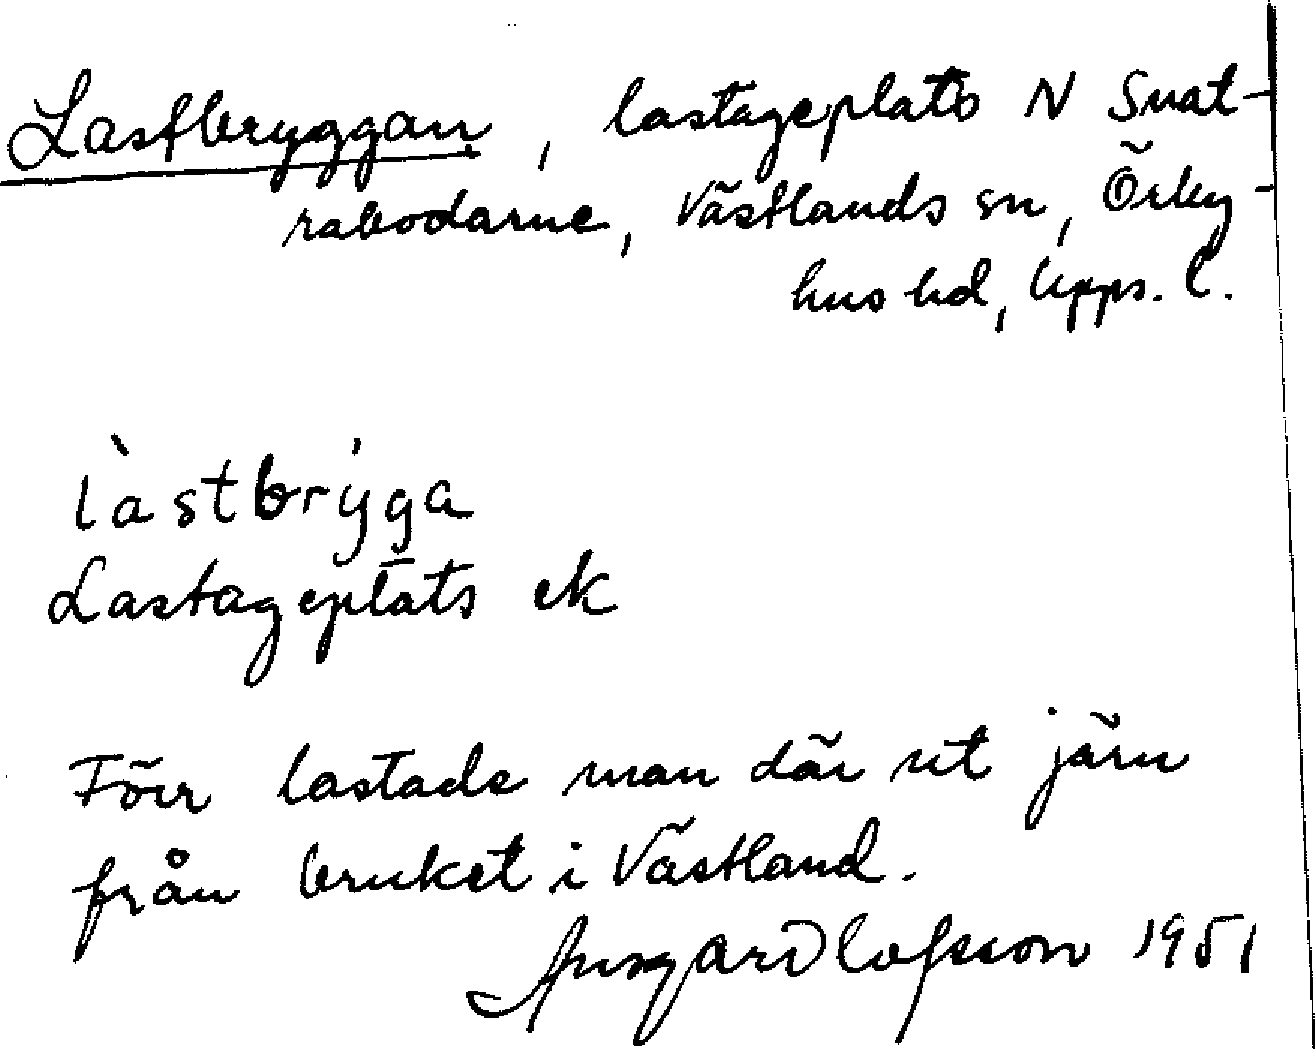 Lastbryggan, lastageplats N Snat-
rabodarne, Västlands sn, Örby-
hus hd, Upps. l.
làstbry̍ga
Lastageplats ek
Förr lastade man där ut järn
från bruket i Västland.
Ansgar Olofsson 1951